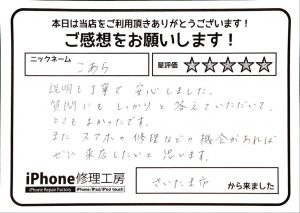 本日は当店をご利用頂きありがとうございます!
ご感想をお願いします!
ニックネーム
こあら
星評価
☆☆☆☆☆
説明も丁寧で安心しました。
質問にもしっかりと答えていただいて、
とてもよかったです。
また スマホの修理などの機会があれば
ぜひ来店したいと思います。
iPhone修理工房
iPhone Repair Factory
iPhone/iPad/iPod touch
さいたま市
から来ました